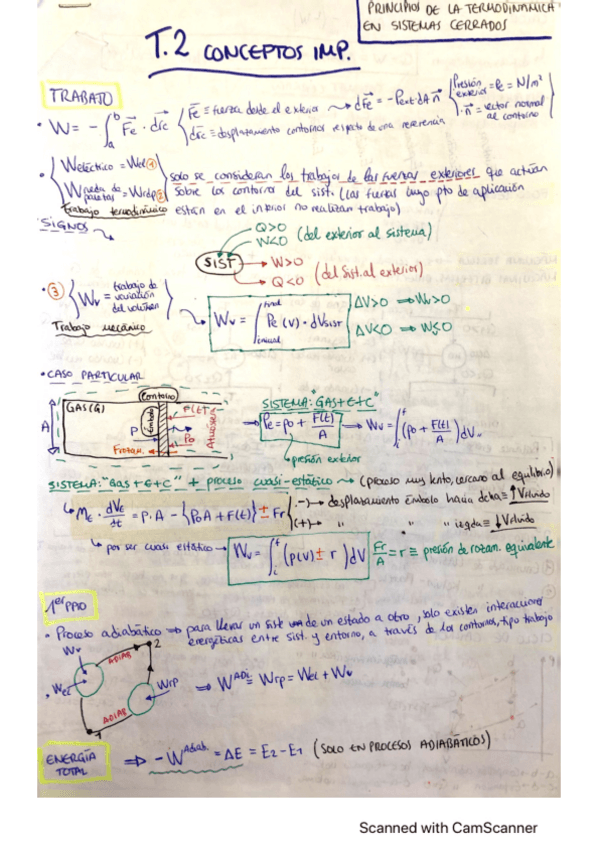 PRINCIPIOS DE LA TERMODINAMICA
EN SISTEMAS CERRADOS
T.2 CONCEPTOS IMP.
TRABAJO
• W = - ∫ₐᵇ F⃗e · dr⃗c { F⃗e ≡ fuerza desde el exterior ⟿ dF⃗e = -Pext·dA n⃗ { Presión exterior = Pe = N/m²
dr⃗c ≡ desplazamiento contornos respecto de una referencia
· n⃗ = vector normal al contorno
• { Weléctrico = Wel ①
Wrueda de paletas = Wrdp ②
solo se consideran los trabajos de las fuerzas exteriores que actúan
sobre los contornos del sist. (Las fuerzas cuyo pto de aplicación
están en el interior no realizan trabajo)
Trabajo termodinámico
SIGNOS
Q>0
W<0 (del exterior al sistema)
SIST → W>0
→ Q<0 (del Sist. al exterior)
• ③ { Wv = trabajo de variación del volumen
Trabajo mecánico
Wv = ∫ inicial final Pe (v) · dVsist
ΔV>0 ⟹ Wv>0
ΔV<0 ⟹ W<0
• CASO PARTICULAR
Contorno
GAS(G)
A
Embolo
P
F(t)
Po
Frozam.
Atmósfera
SISTEMA: "GAS+E+C"
→ Pe = po + F(t)/A → Wv = ∫ᵢᶠ (po + F(t)/A) dV
↳ presión exterior
SISTEMA: "Gas + E + C" + proceso cuasi-estático ⟿ (proceso muy lento, cercano al equilibrio)
↳ ME · dVE/dt = P·A - {PoA + F(t)} ± Fr { (-) → desplazamiento émbolo hacia dcha ≡ ↑Vsólido
(+) → " " " izqda ≡ ↓Vsólido
↳ por ser cuasi estático → Wv = ∫ᵢᶠ (p(v) ± r) dV
Fr/A = r ≡ presión de rozam. equivalente
1er PPIO
• Proceso adiabático ⟹ para llevar un sist de un estado a otro, solo existen interacciones
energéticas entre sist. y entorno, a través de los contornos, tipo trabajo
Wv
ADIAB
2
Wel
Wrp
ADIAB
1
⟹ Wᴬᴰⁱ = Wrp = Wel + Wv
ENERGÍA TOTAL
⟹ - Wᴬᵈⁱᵃᵇ = ΔE = E2 - E1 (SOLO EN PROCESOS ADIABÁTICOS)
Scanned with CamScanner